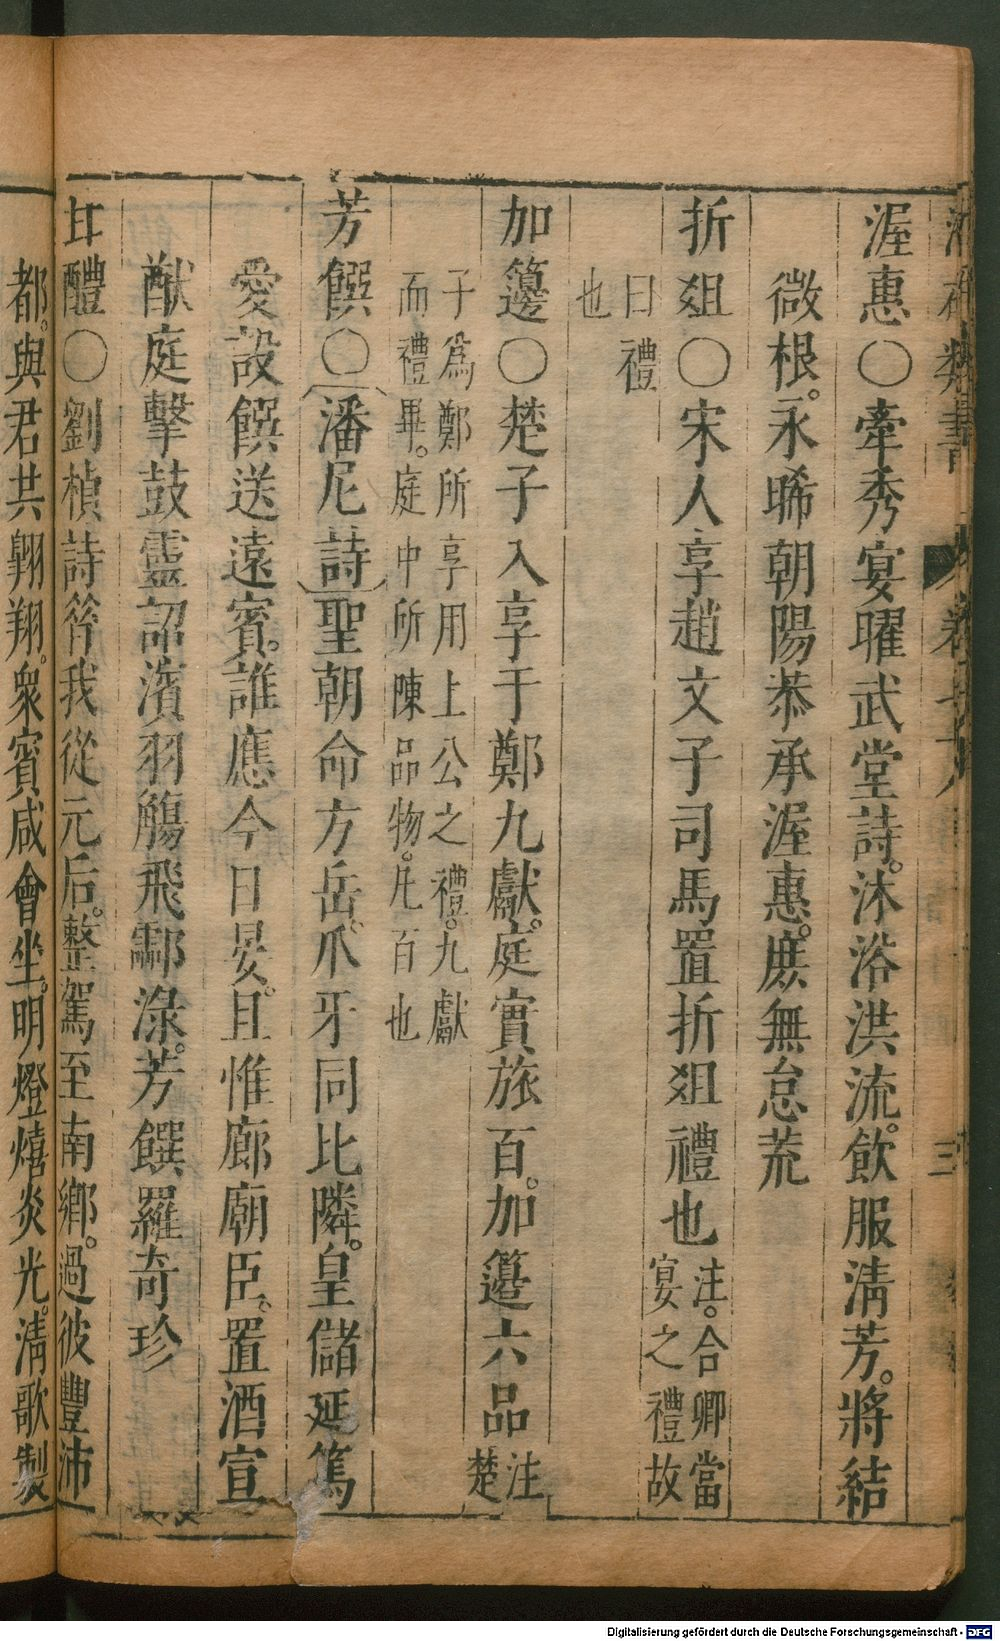 渥惠○牽秀宴曜武堂詩。沐浴洪流。飲服淸芳。將結
微根。永晞朝陽恭承渥惠。庶無怠荒
折俎○宋人享趙文子司馬置折俎禮也注。合卿當
宴之禮故
曰禮
也
加籩○楚子入享于鄭九獻。庭實旅百。加籩六品注
楚
子爲鄭所享用上公之禮。九獻
而禮畢。庭中所陳品物。凡百也
芳饌○潘尼詩聖朝命方岳、爪牙同比隣。皇儲延篤
愛設饌送遠賓。誰應今日宴。且惟廊廟臣、置酒宣
猷庭擊鼓靈詔濱羽觴飛酃淥。芳饌羅奇珍
甘醴○劉楨詩昝我從元后。整駕至南鄉。過彼豐沛
都。與君共翺翔。衆賓咸會坐。明燈熺炎光。淸歌製
三
Digitalisierung gefördert durch die Deutsche Forschungsgemeinschaft - DFG